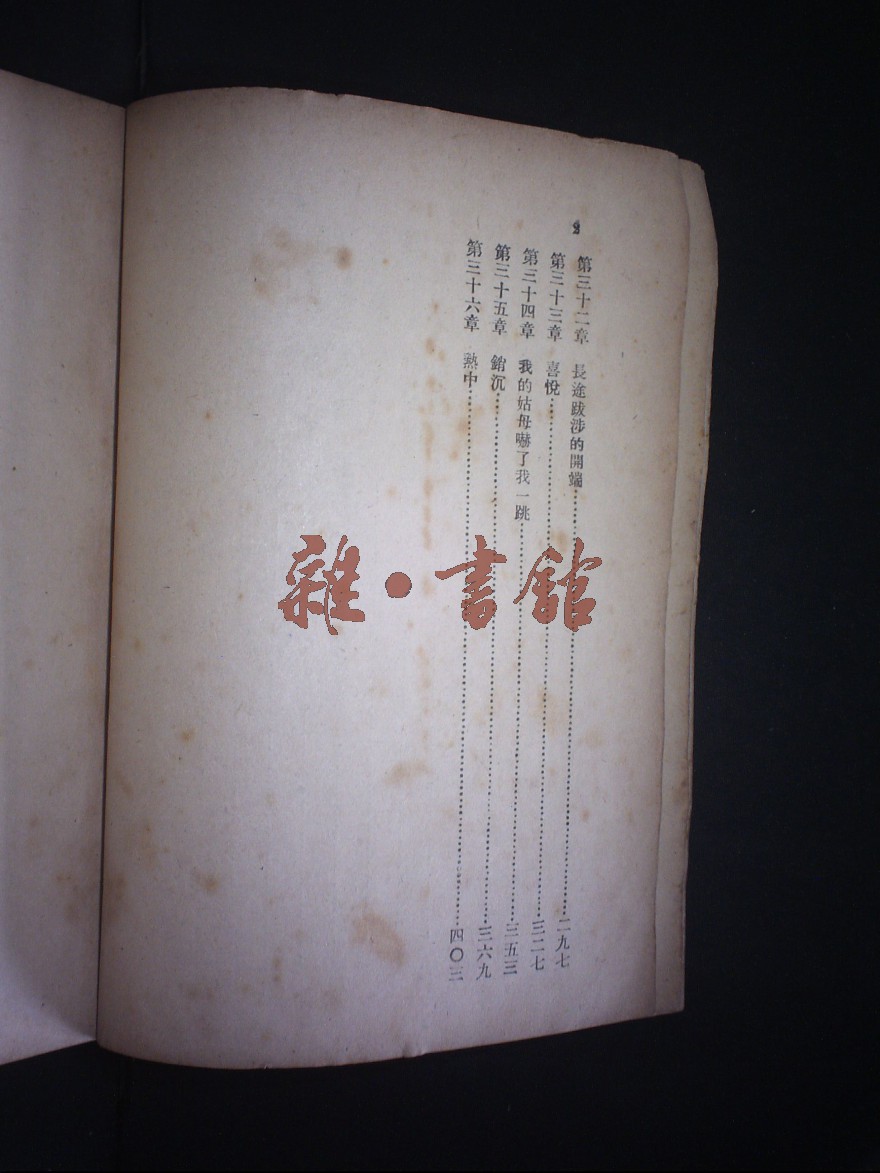 2
第三十二章 長途跋涉的開端……二九七
第三十三章 喜悅……三二七
第三十四章 我的姑母嚇了我一跳……三五三
第三十五章 銷沉……三六九
第三十六章 熱中……四〇三
雜•書館